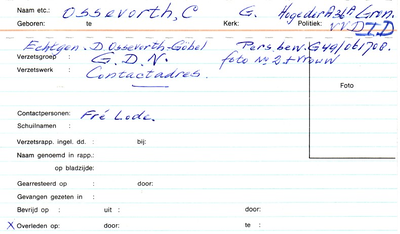 Naam etc.: Ossevorth, C G. Hogeder A 36ª Gron.
Geboren: te Kerk: Politiek: VVDTD
Echtgen. D. Ossevorth-Göbel Pers.bew. G44/061708.
Verzetsgroep : G.D.N. foto No 2 + vrouw
Verzetswerk : Contactadres.
Foto
Contactpersonen: Fré Lode.
Schuilnamen :
Verzetsrapp. ingel. dd. : bij:
Naam genoemd in rapp.:
op bladzijde:
Gearresteerd op : door:
Gevangen gezeten in :
Bevrijd op : uit : door:
X Overleden op: door: te :